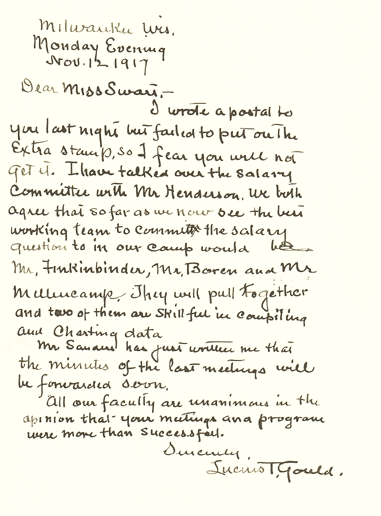 Milwaukee Wis.
Monday Evening
Nov. 12 1917
Dear Miss Swart,—
I wrote a postal to
you last night but failed to put on the
Extra stamp, so I fear you will not
get it. I have talked over the salary
Committee with Mr Henderson. We both
agree that so far as we now see the best
working team to commit the salary
question to in our camp would be
Mr. Finkinbinder, Mr. Boren and Mr
Mellencamp. They will pull together
and two of them are skillful in compiling
and Charting data
Mr has just written me that
the minutes of the last meetings will
be forwarded soon.
All our faculty are unanimous in the
opinion that your meetings and program
were more than successful.
Sincerely,
Lucius T. Gould.